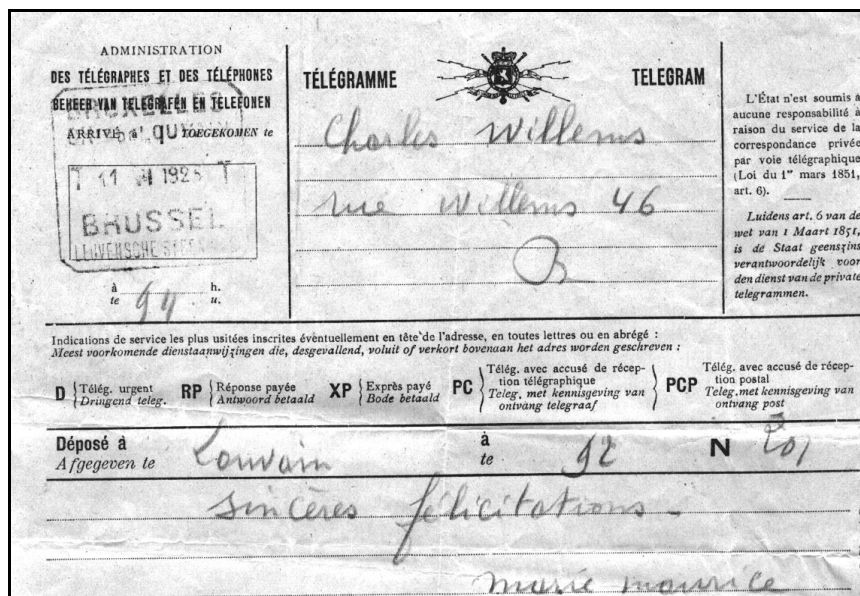 ADMINISTRATION
DES TÉLÉGRAPHES ET DES TÉLÉPHONES
BEHEER VAN TELEGRAFEN EN TELEFONEN
BRUXELLES
ARRIVÉ à TOEGEKOMEN te
T 11 1925 T
BRUSSEL
à h.
te u.
TÉLÉGRAMME TELEGRAM
Charles Willems
rue Willems 46
L'État n'est soumis à
aucune responsabilité à
raison du service de la
correspondance privée
par voie télégraphique
(Loi du 1er mars 1851,
art. 6).
Luidens art. 6 van de
wet van 1 Maart 1851,
is de Staat geenszins
verantwoordelijk voor
den dienst van de private
telegrammen.
Indications de service les plus usitées inscrites éventuellement en tête de l'adresse, en toutes lettres ou en abrégé :
Meest voorkomende dienstaanwijzingen die, desgevallend, voluit of verkort bovenaan het adres worden geschreven :
D { Télég. urgent
Dringend teleg.
RP { Réponse payée
Antwoord betaald
XP { Exprès payé
Bode betaald
PC { Télég. avec accusé de récep-
tion télégraphique
Teleg. met kennisgeving van
ontvang telegraaf
PCP { Télég. avec accusé de récep-
tion postal
Teleg. met kennisgeving van
ontvang post
Déposé à Louvain à 92 N 201
Afgegeven te te
sincères félicitations -
marie maurice